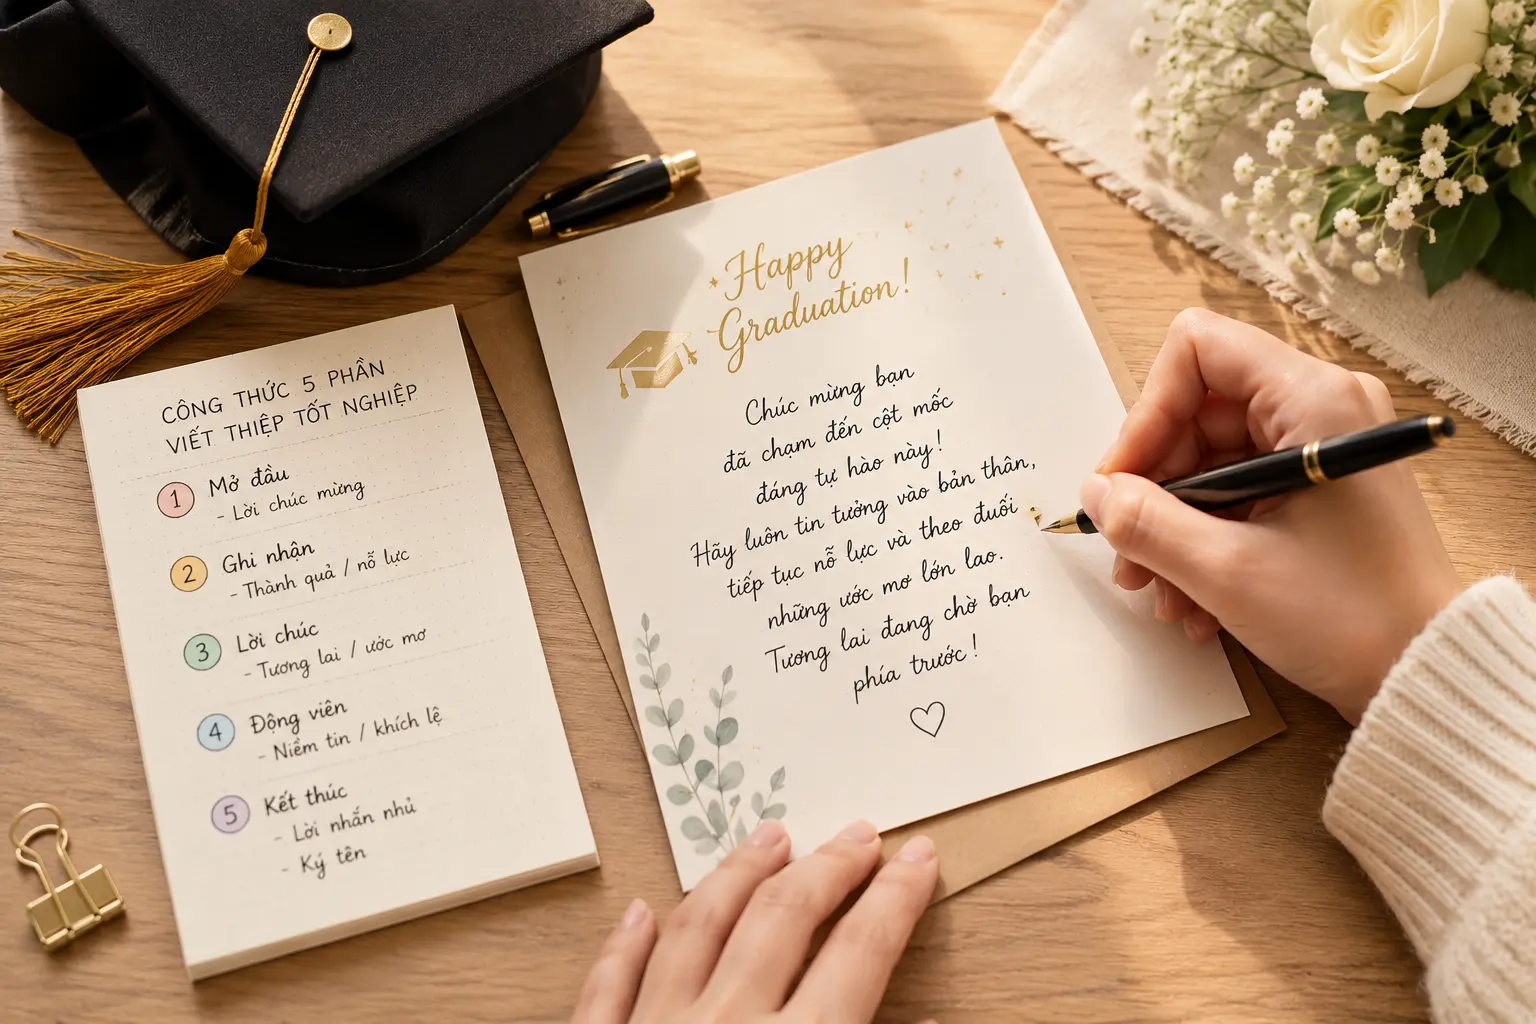 CÔNG THỨC 5 PHẦN
VIẾT THIỆP TỐT NGHIỆP
1 Mở đầu
- Lời chúc mừng
2 Ghi nhận
- Thành quả / nỗ lực
3 Lời chúc
- Tương lai / ước mơ
4 Động viên
- Niềm tin / khích lệ
5 Kết thúc
- Lời nhắn nhủ
- Ký tên
Happy
Graduation!
Chúc mừng bạn
đã chạm đến cột mốc
đáng tự hào này!
Hãy luôn tin tưởng vào bản thân,
tiếp tục nỗ lực và theo đuổi
những ước mơ lớn lao.
Tương lai đang chờ bạn
phía trước!